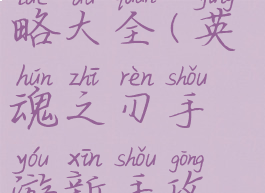 略大全(英
hún zhī rèn shǒu
魂之刃手
yóu xīn shǒu gōng
游新手攻